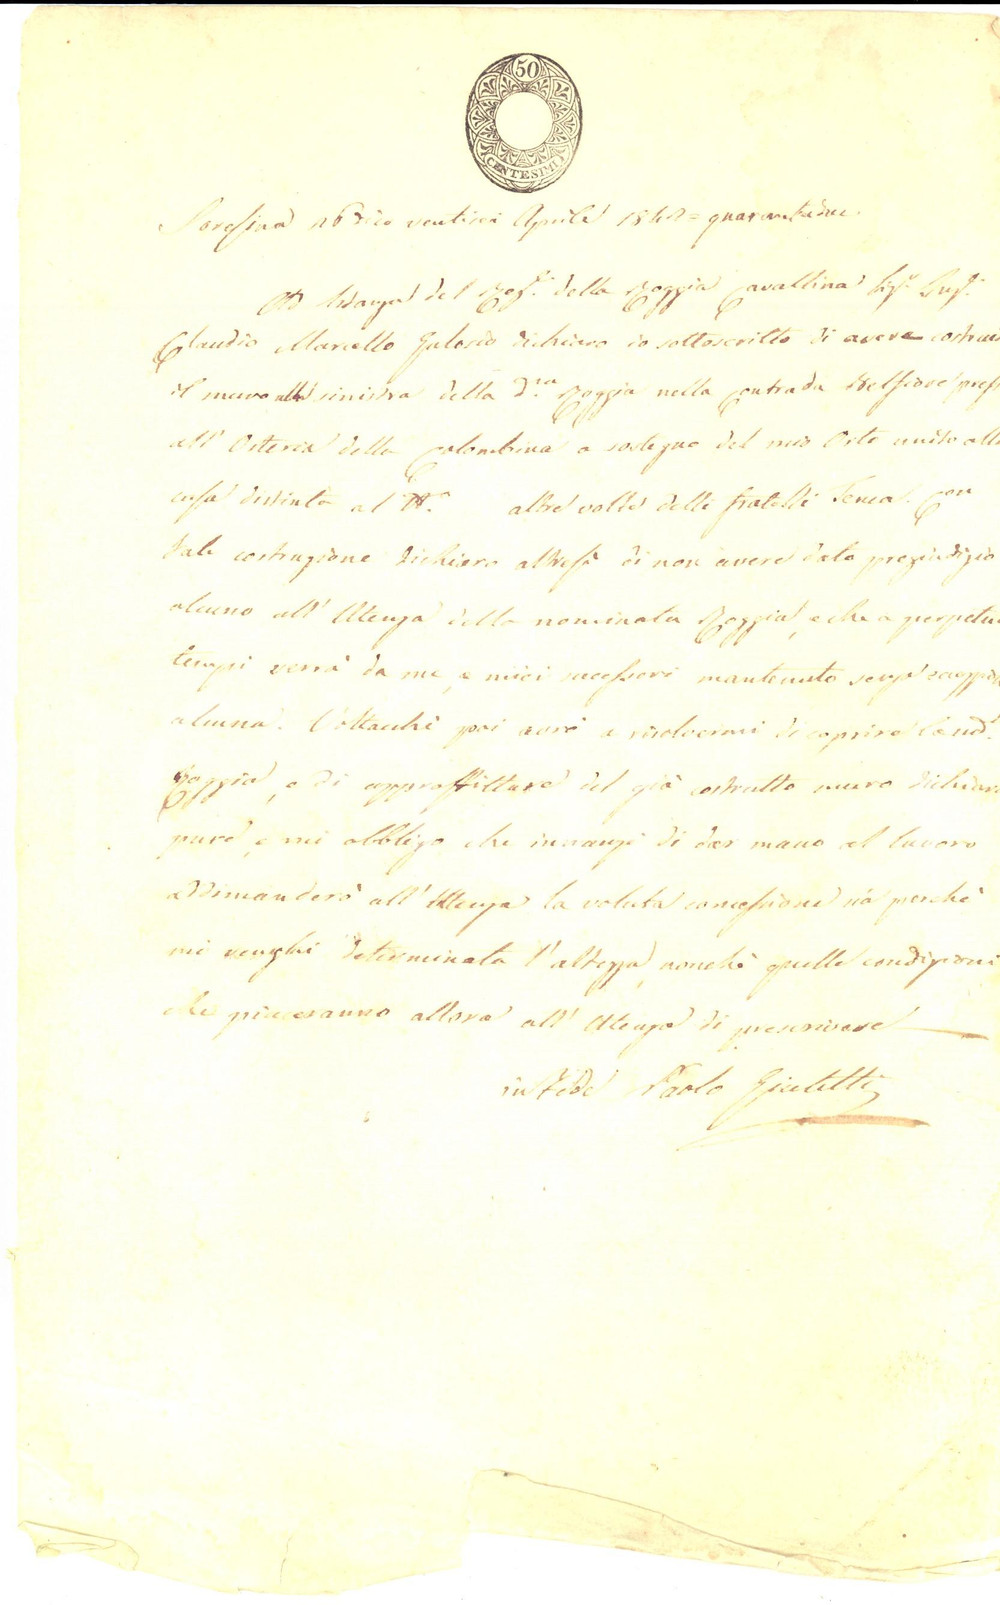 50
CENTESIMI
Soresina 26 dico ventisei Aprile 1842 = quarantadue.
Ad istanza del Reg.e della Roggia Cavallina Sig.r Ing.r
Claudio Marcello dichiaro io sottoscritto di avere costrut
il muro alla sinistra della d.ta Roggia nella Contrada presso
all' Osteria della Colombina a sostegno del mio Orto unito alla
casa distinta al N.o altre volte delli fratelli Tenca. Con
tale costruzione dichiaro altresì di non avere dato pregiudizio
alcuno all' Utenza della nominata Roggia, e che a perpetui
tempi verrà da me, e miei successori mantenuto senza eccezione
alcuna. Vottacchè poi avrò a risolvermi di coprire la sud.a
Roggia, e di approffittare del già costrutto muro dichiaro
pure, e mi obbligo che innanzi di dar mano al lavoro
addimanderò all' Utenza la voluta concessione sia perchè
mi venghi determinata l'altezza, nonchè quelle condizioni
che piaceranno allora all' Utenza di prescrivere
in Fede Paolo